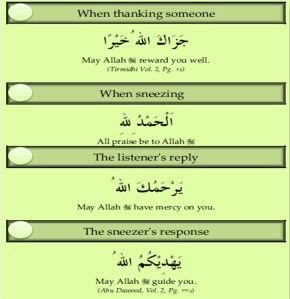 When thanking someone
جَزَاكَ اللهُ خَيْرًا
May Allah ﷻ reward you well.
(Tirmidhi Vol. 2, Pg. ٢٤)
When sneezing
اَلْحَمْدُ لِلّٰهِ
All praise be to Allah ﷻ
The listener's reply
يَرْحَمُكَ اللهُ
May Allah ﷻ have mercy on you.
The sneezer's response
يَهْدِيْكُمُ اللهُ
May Allah ﷻ guide you.
(Abu Dawood, Vol. 2, Pg. ٣٣٥)